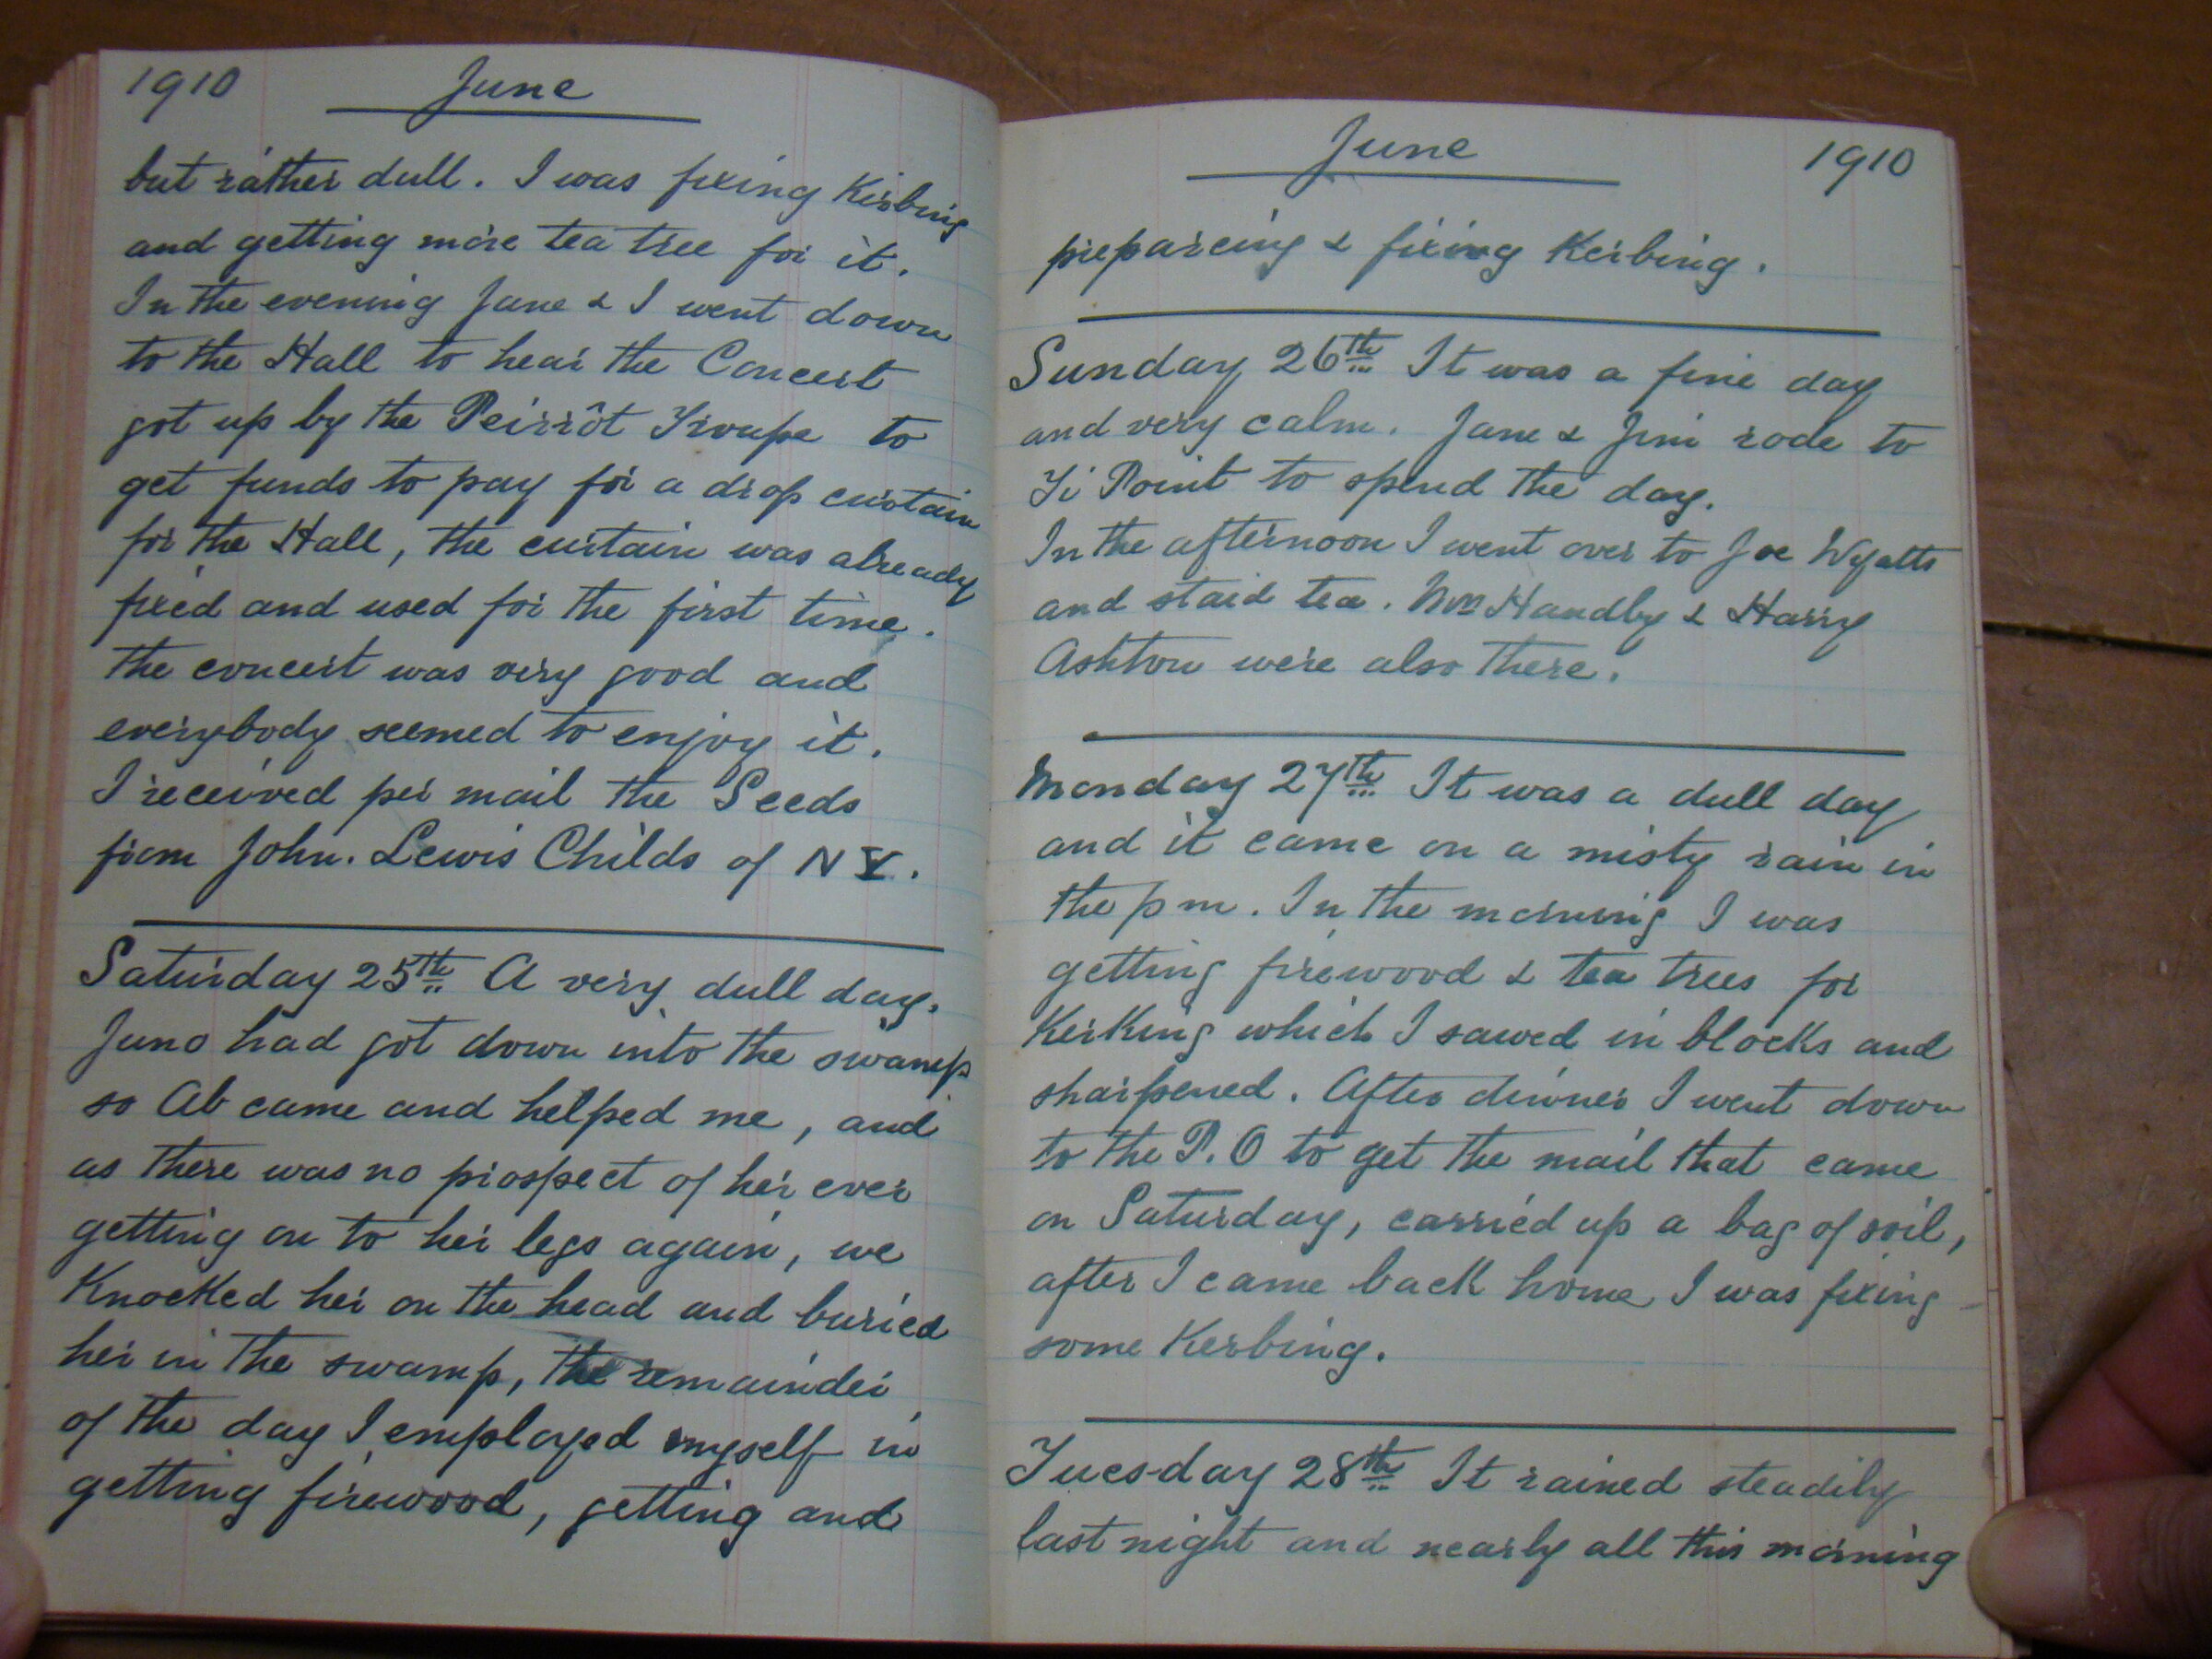 1910 June
but rather dull. I was fixing Kerbing
and getting more tea tree for it.
In the evening Jane & I went down
to the Hall to hear the Concert
got up by the Peirrôt Troupe to
get funds to pay for a drop curtain
for the Hall, the curtain was already
fixed and used for the first time.
The concert was very good and
everybody seemed to enjoy it.
I received per mail the Seeds
from John. Lewis Childs of NY.
Saturday 25th A very dull day.
Juno had got down into the swamp
so Ab came and helped me, and
as there was no prospect of her ever
getting on to her legs again, we
Knocked her on the head and buried
her in the swamp, the remainder
of the day I employed myself in
getting firewood, getting and
June 1910
prepareing & fixing Kerbing.
Sunday 26th It was a fine day
and very calm. Jane & Jim rode to
Ti Point to spend the day.
In the afternoon I went over to Joe Wyatts
and staid tea. Mrs Handby & Harry
Ashton were also there.
Monday 27th It was a dull day
and it came on a misty rain in
the pm. In the morning I was
getting firewood & tea trees for
KerKing which I sawed in blocks and
sharpened. After dinner I went down
to the P.O to get the mail that came
on Saturday, carried up a bag of soil,
after I came back home I was fixing
some Kerbing.
Tuesday 28th It rained steadily
last night and nearly all this morning